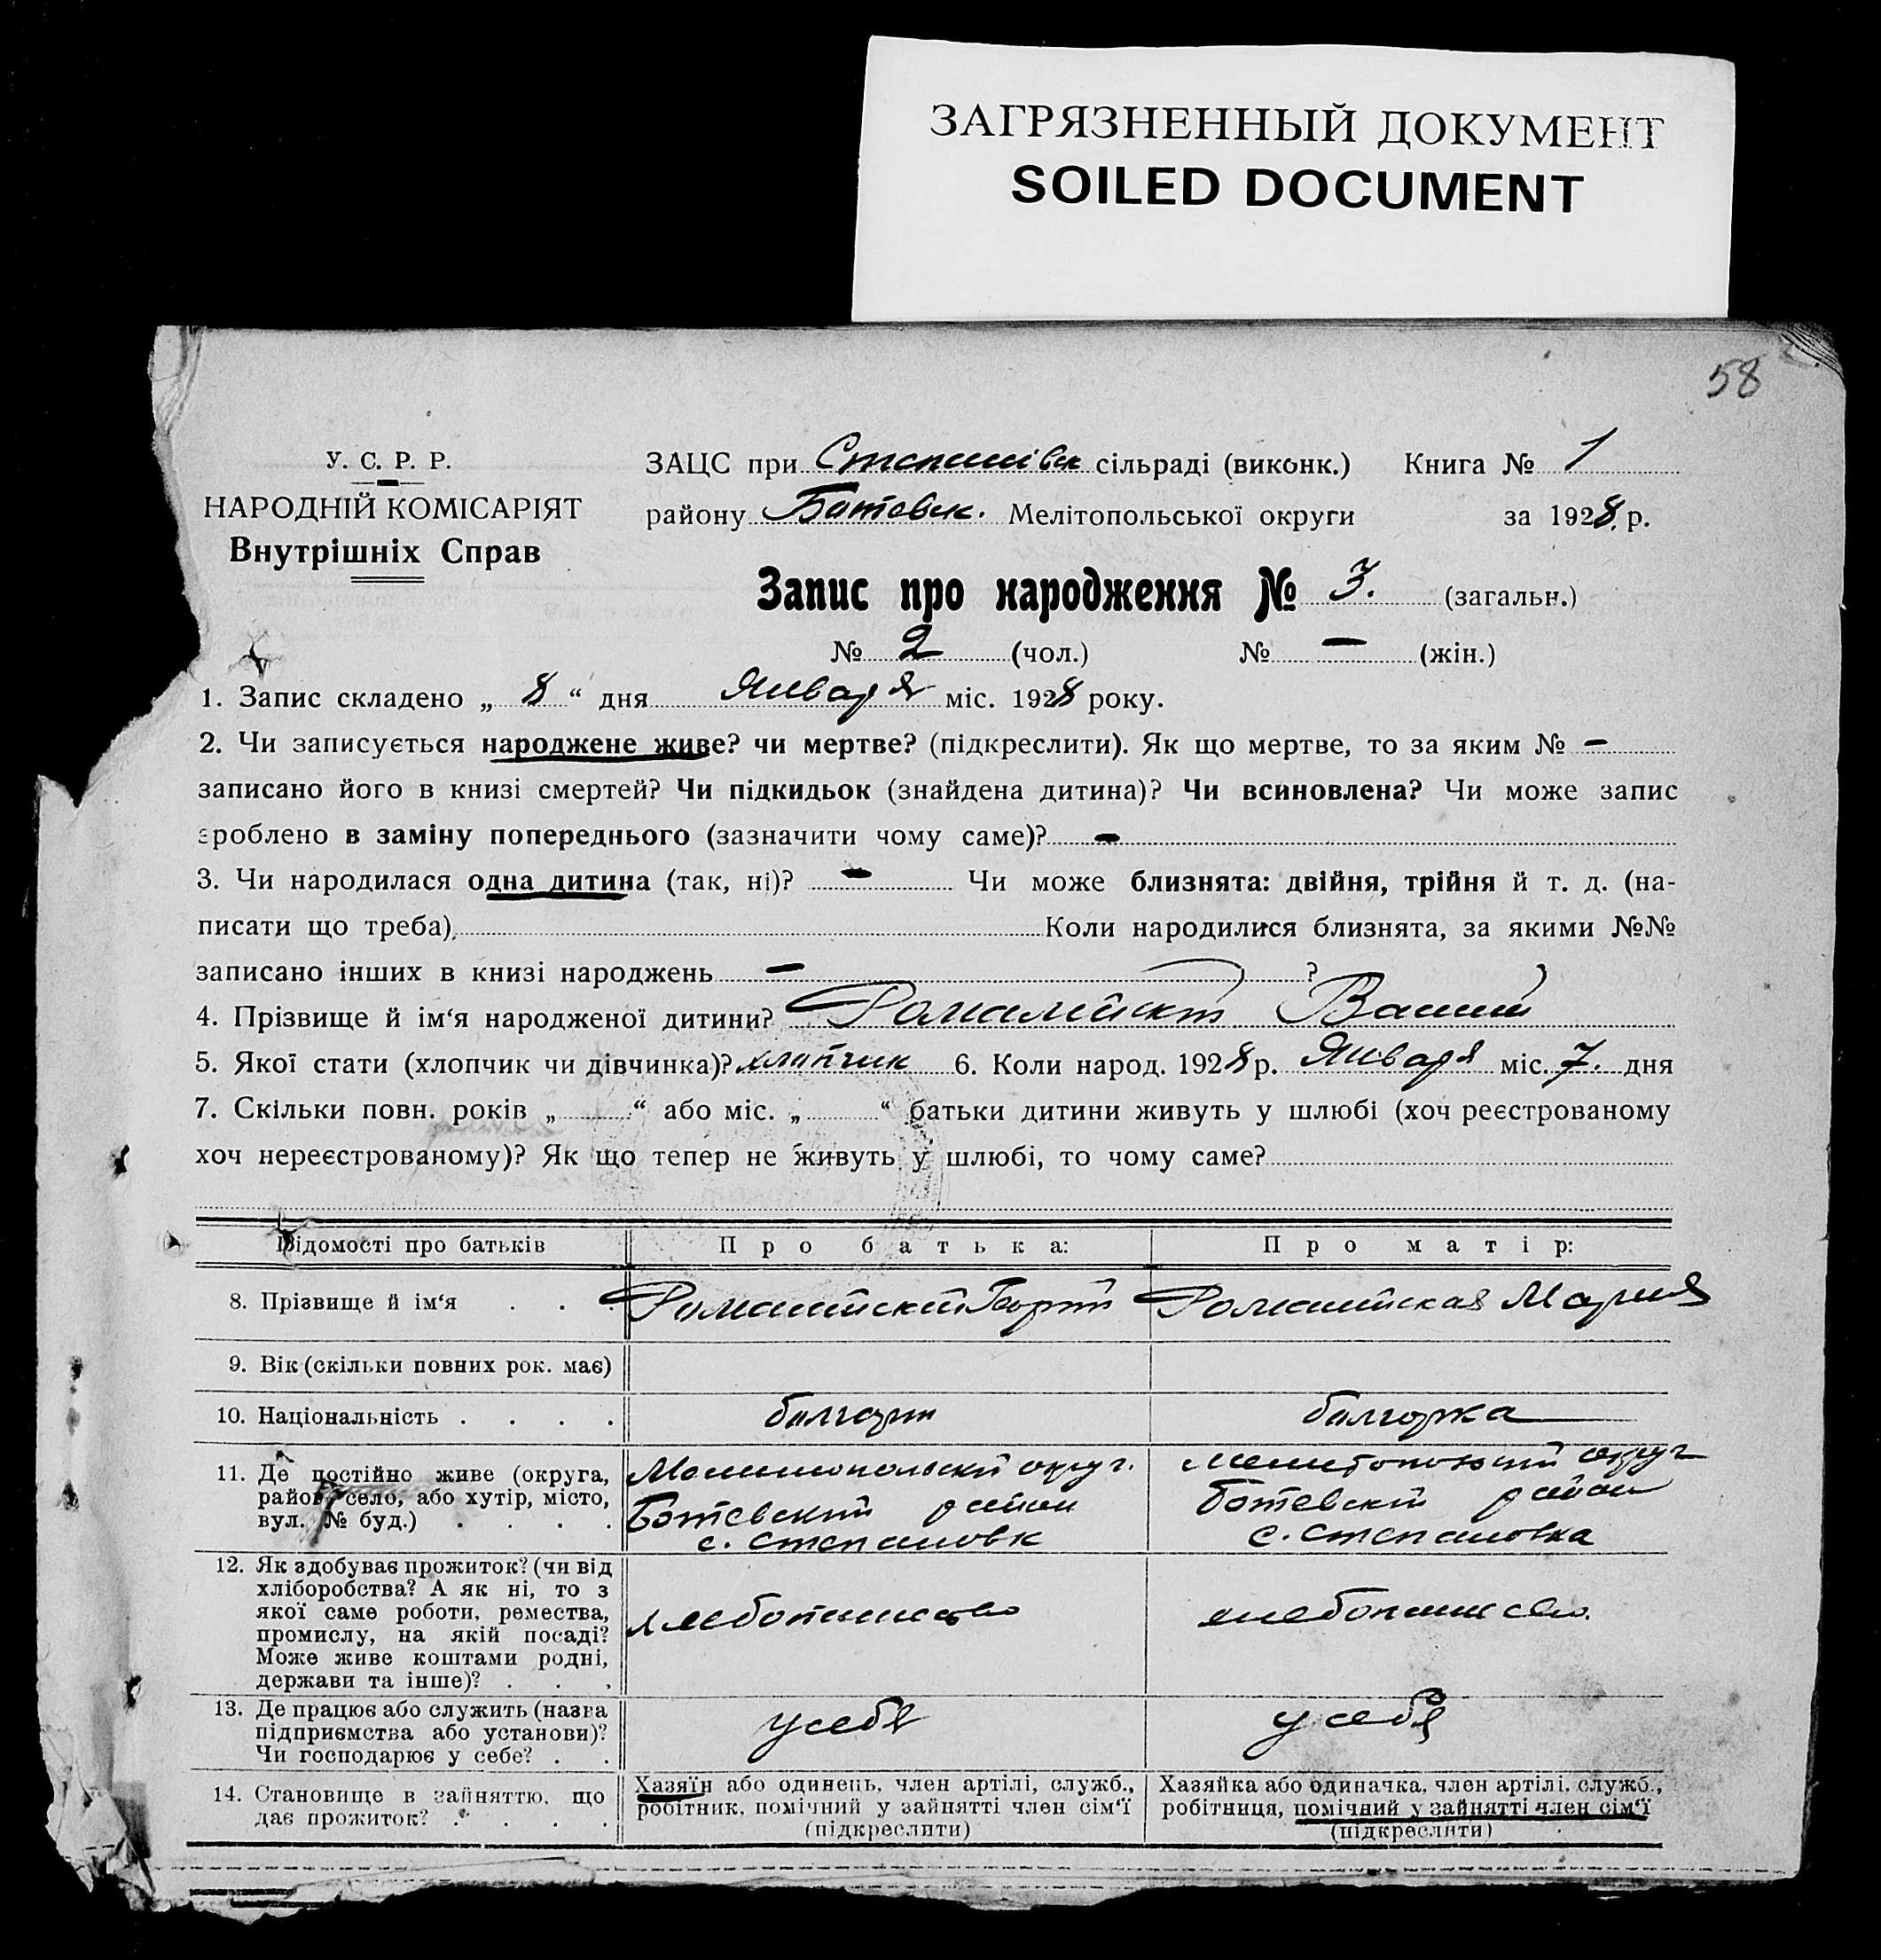 ЗАГРЯЗНЕННЫЙ ДОКУМЕНТ
SOILED DOCUMENT
58
У. С. Р. Р.
НАРОДНІЙ КОМІСАРІЯТ
Внутрішніх Справ
ЗАЦС при Степанівск сільраді (виконк.) Книга № 1
району Ботевск. Мелітопольської округи за 1928 р.
Запис про народження № 3. (загальн.)
№ 2 (чол.) № — (жін.)
1. Запис складено „ 8 “ дня Января міс. 1928 року.
2. Чи записується народжене живе? чи мертве? (підкреслити). Як що мертве, то за яким № —
записано його в книзі смертей? Чи підкидьок (знайдена дитина)? Чи всиновлена? Чи може запис
зроблено в заміну попереднього (зазначити чому саме)? —
3. Чи народилася одна дитина (так, ні)? — Чи може близнята: двійня, трійня й т. д. (на-
писати що треба). Коли народилися близнята, за якими №№
записано інших в книзі народжень — ?
4. Прізвище й ім‘я народженої дитини?
5. Якої стати (хлопчик чи дівчинка)? хлопчик 6. Коли народ. 1928 р. Января міс. 7. дня
7. Скільки повн. років „ “ або міс. „ “ батьки дитини живуть у шлюбі (хоч реєстрованому
хоч нереєстрованому)? Як що тепер не живуть у шлюбі, то чому саме?
Відомості про батьків
Про батька:
Про матір:
8. Прізвище й ім‘я . . .
Георгій
Мария
9. Вік (скільки повних рок. має)
10. Національність . . . .
болгарин
болгарка
11. Де постійно живе (округа,
район, село, або хутір, місто,
вул. № буд.) . . . .
Мелитопольский округ.
Ботевский район
с. Степановк
Мелитопольский округ
Ботевский район
с. Степановка
12. Як здобуває прожиток? (чи від
хліборобства? А як ні, то з
якої саме роботи, ремества,
промислу, на якій посаді?
Може живе коштами родні,
держави та інше)? . . .
хлебопашество
хлебопашество
13. Де працює або служить (назва
підприємства або установи)?
Чи господарює у себе? . .
у себя
у себя
14. Становище в зайняттю, що
дає прожиток? . . . .
Хазяїн або одинець, член артілі, служб.,
робітник, помічний у зайнятті член сім‘ї
(підкреслити)
Хазяйка або одиначка, член артілі, служб.,
робітниця, помічний у зайнятті член сім‘ї
(підкреслити)